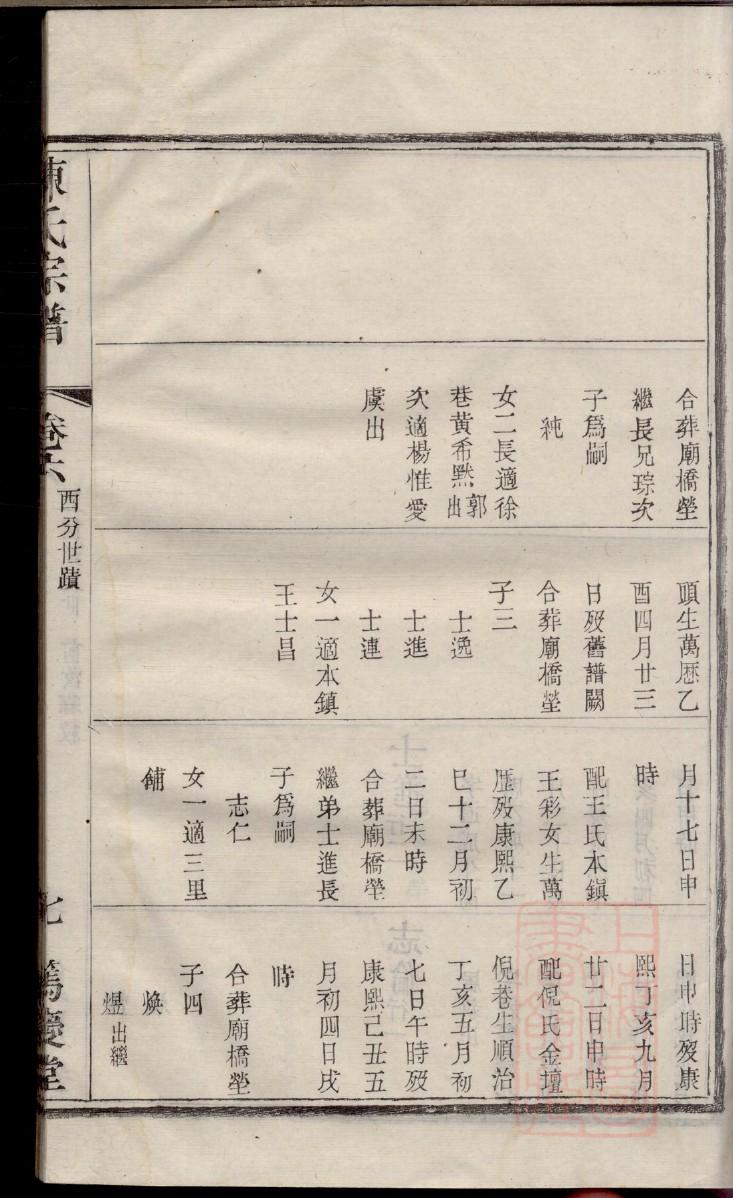 合葬廟橋塋
繼長兄琮次
子爲嗣
純
女二長適徐
巷黄希黙郭出
次適楊惟愛
虞出
頭生萬厯乙
酉四月廿三
日歿舊譜闕
合葬廟橋塋
子三
士逸
士進
士連
女一適本鎮
王士昌
月十七日申
時
配王氏本鎮
王彩女生萬
厯歿康熙乙
巳十二月初
二日未時
合葬廟橋塋
繼弟士進長
子爲嗣
志仁
女一適三里
鋪
日申時歿康
熙丁亥九月
廿二日申時
配倪氏金壇
倪巷生順治
丁亥五月初
七日午時歿
康熙己丑五
月初四日戌
時
合葬廟橋塋
子四
煥
煜出繼
陳氏宗譜
卷六
西分世蹟
七
篤慶堂